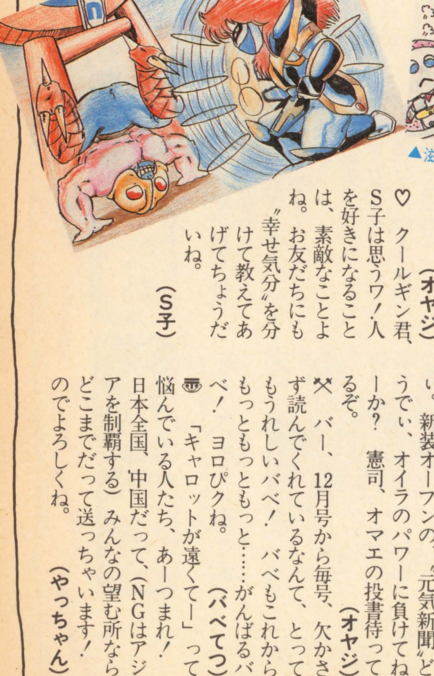 (オヤジ)
♡ クールギン君、
S子は思うワ!人
を好きになること
は、素敵なことよ
ね。お友だちにも
〝幸せ気分〟を分
けて教えてあ
げてちょうだ
いね。
(S子)
い。新装オープンの、〝元気新聞〟ど
うでぃ、オイラのパワーに負けてね
ーか? 憲司、オマエの投書待って
るぞ。
(オヤジ)
バー、12月号から毎号、欠かさ
ず読んでくれているなんて、とって
もうれしいベベ! ベベもこれから
もっともっともっと……がんばるバ
ベ! ヨロピクね。
(バベてつ)
「キャロットが遠くてー」って
悩んでいる人たち、あーつまれ!
日本全国、中国だって、(NGはアジ
アを制覇する) みんなの望む所なら
どこまでだって送っちゃいます!
のでよろしくね。
(やっちゃん)